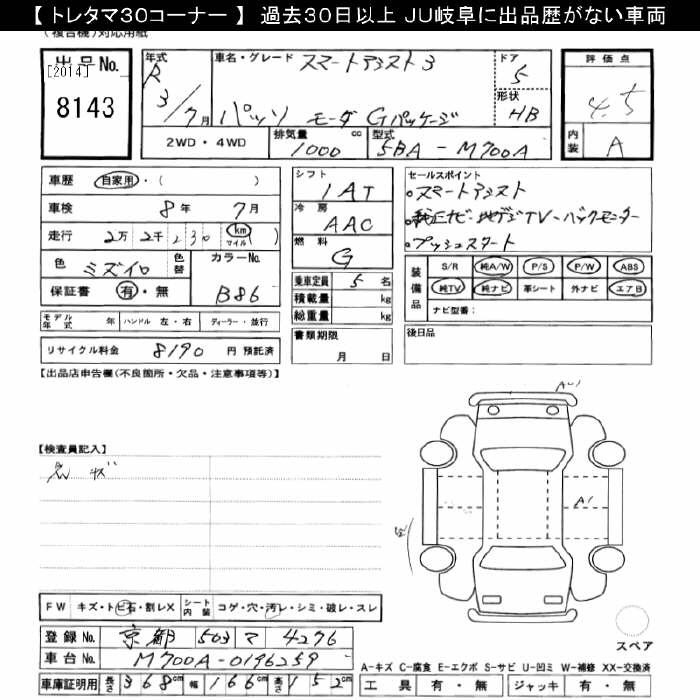 【 トレタマ30コーナー 】 過去30日以上 JU岐阜に出品歴がない車両
(複合機)対応用紙
出品No.
[2014]
8143
年式
R
3/7月
車名・グレード
スマートアシスト3
パッソ モーダ Gパッケージ
ドア
5
形状
HB
評価点
4.5
内装
A
2WD・4WD
排気量
1000 cc
型式
5BA-M700A
車歴 自家用・( )
車検 8年 7月
走行 2万2千230 km マイル( )
色 ミズイロ
色替
カラーNo.
B86
保証書 有・無
モデル年式 年 ハンドル 左・右 ディーラー・並行
リサイクル料金 8190 円 預託済
シフト
1AT
冷房
AAC
燃料
G
乗車定員 5 名
積載量 kg
総重量 kg
書類期限
月 日
セールスポイント
・スマートアシスト
・純正ナビ・地デジTV・バックモニター
・プッシュスタート
装備品
S/R 純A/W P/S P/W ABS
純TV 純ナビ 革シート 外ナビ エアB
ナビ型番:
後日品
【出品店申告欄(不良箇所・欠品・注意事項等)】
【検査員記入】
A1
FW キズ・トビ石・割レX
シート内装 コゲ・穴・汚レ・シミ・破レ・スレ
登録No. 京都 503 マ 4276
車台No. M700A-0196259
車庫証明用 長さ 368cm 幅 166cm 高さ 152cm
スペア
A-キズ C-腐食 E-エクボ S-サビ U-凹ミ W-補修 XX-交換済
工具 有・無 ジャッキ 有・無